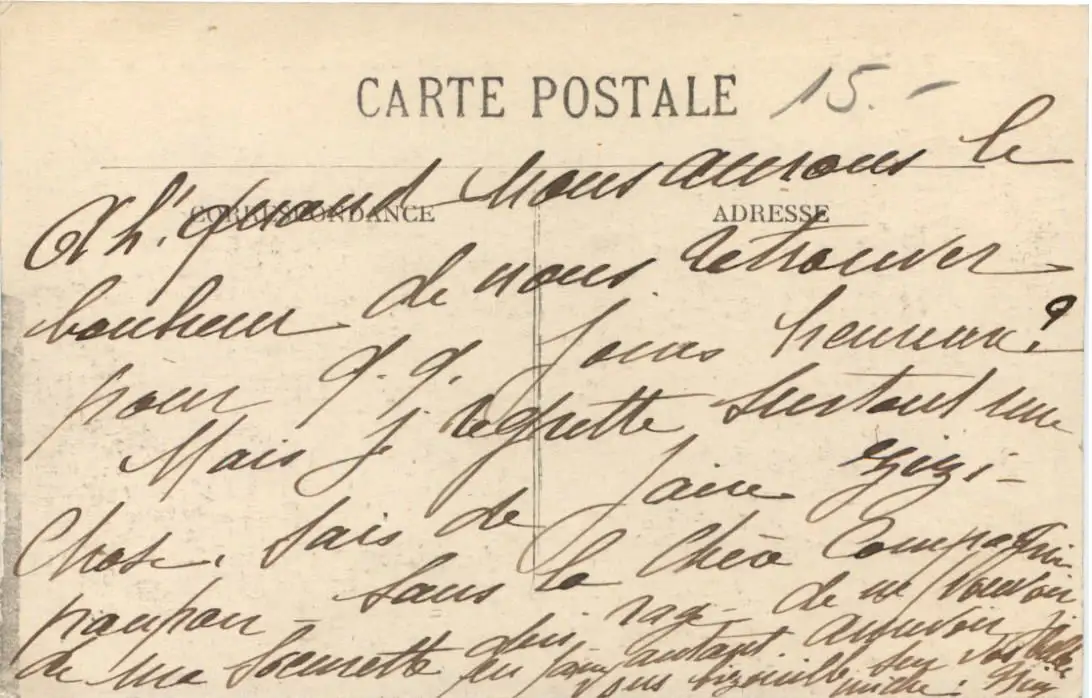 CARTE POSTALE 15.-
CORRESPONDANCE ADRESSE
Ah! quand nous aurons le
bonheur de nous retrouver
pour q.q. jours heureux?
Mais je regrette surtout une
chose. de faire zizi-
panpan sans la chère Compagnie
de ma soeurette qui rage de ne pouvoir
en faire autant. sur vos